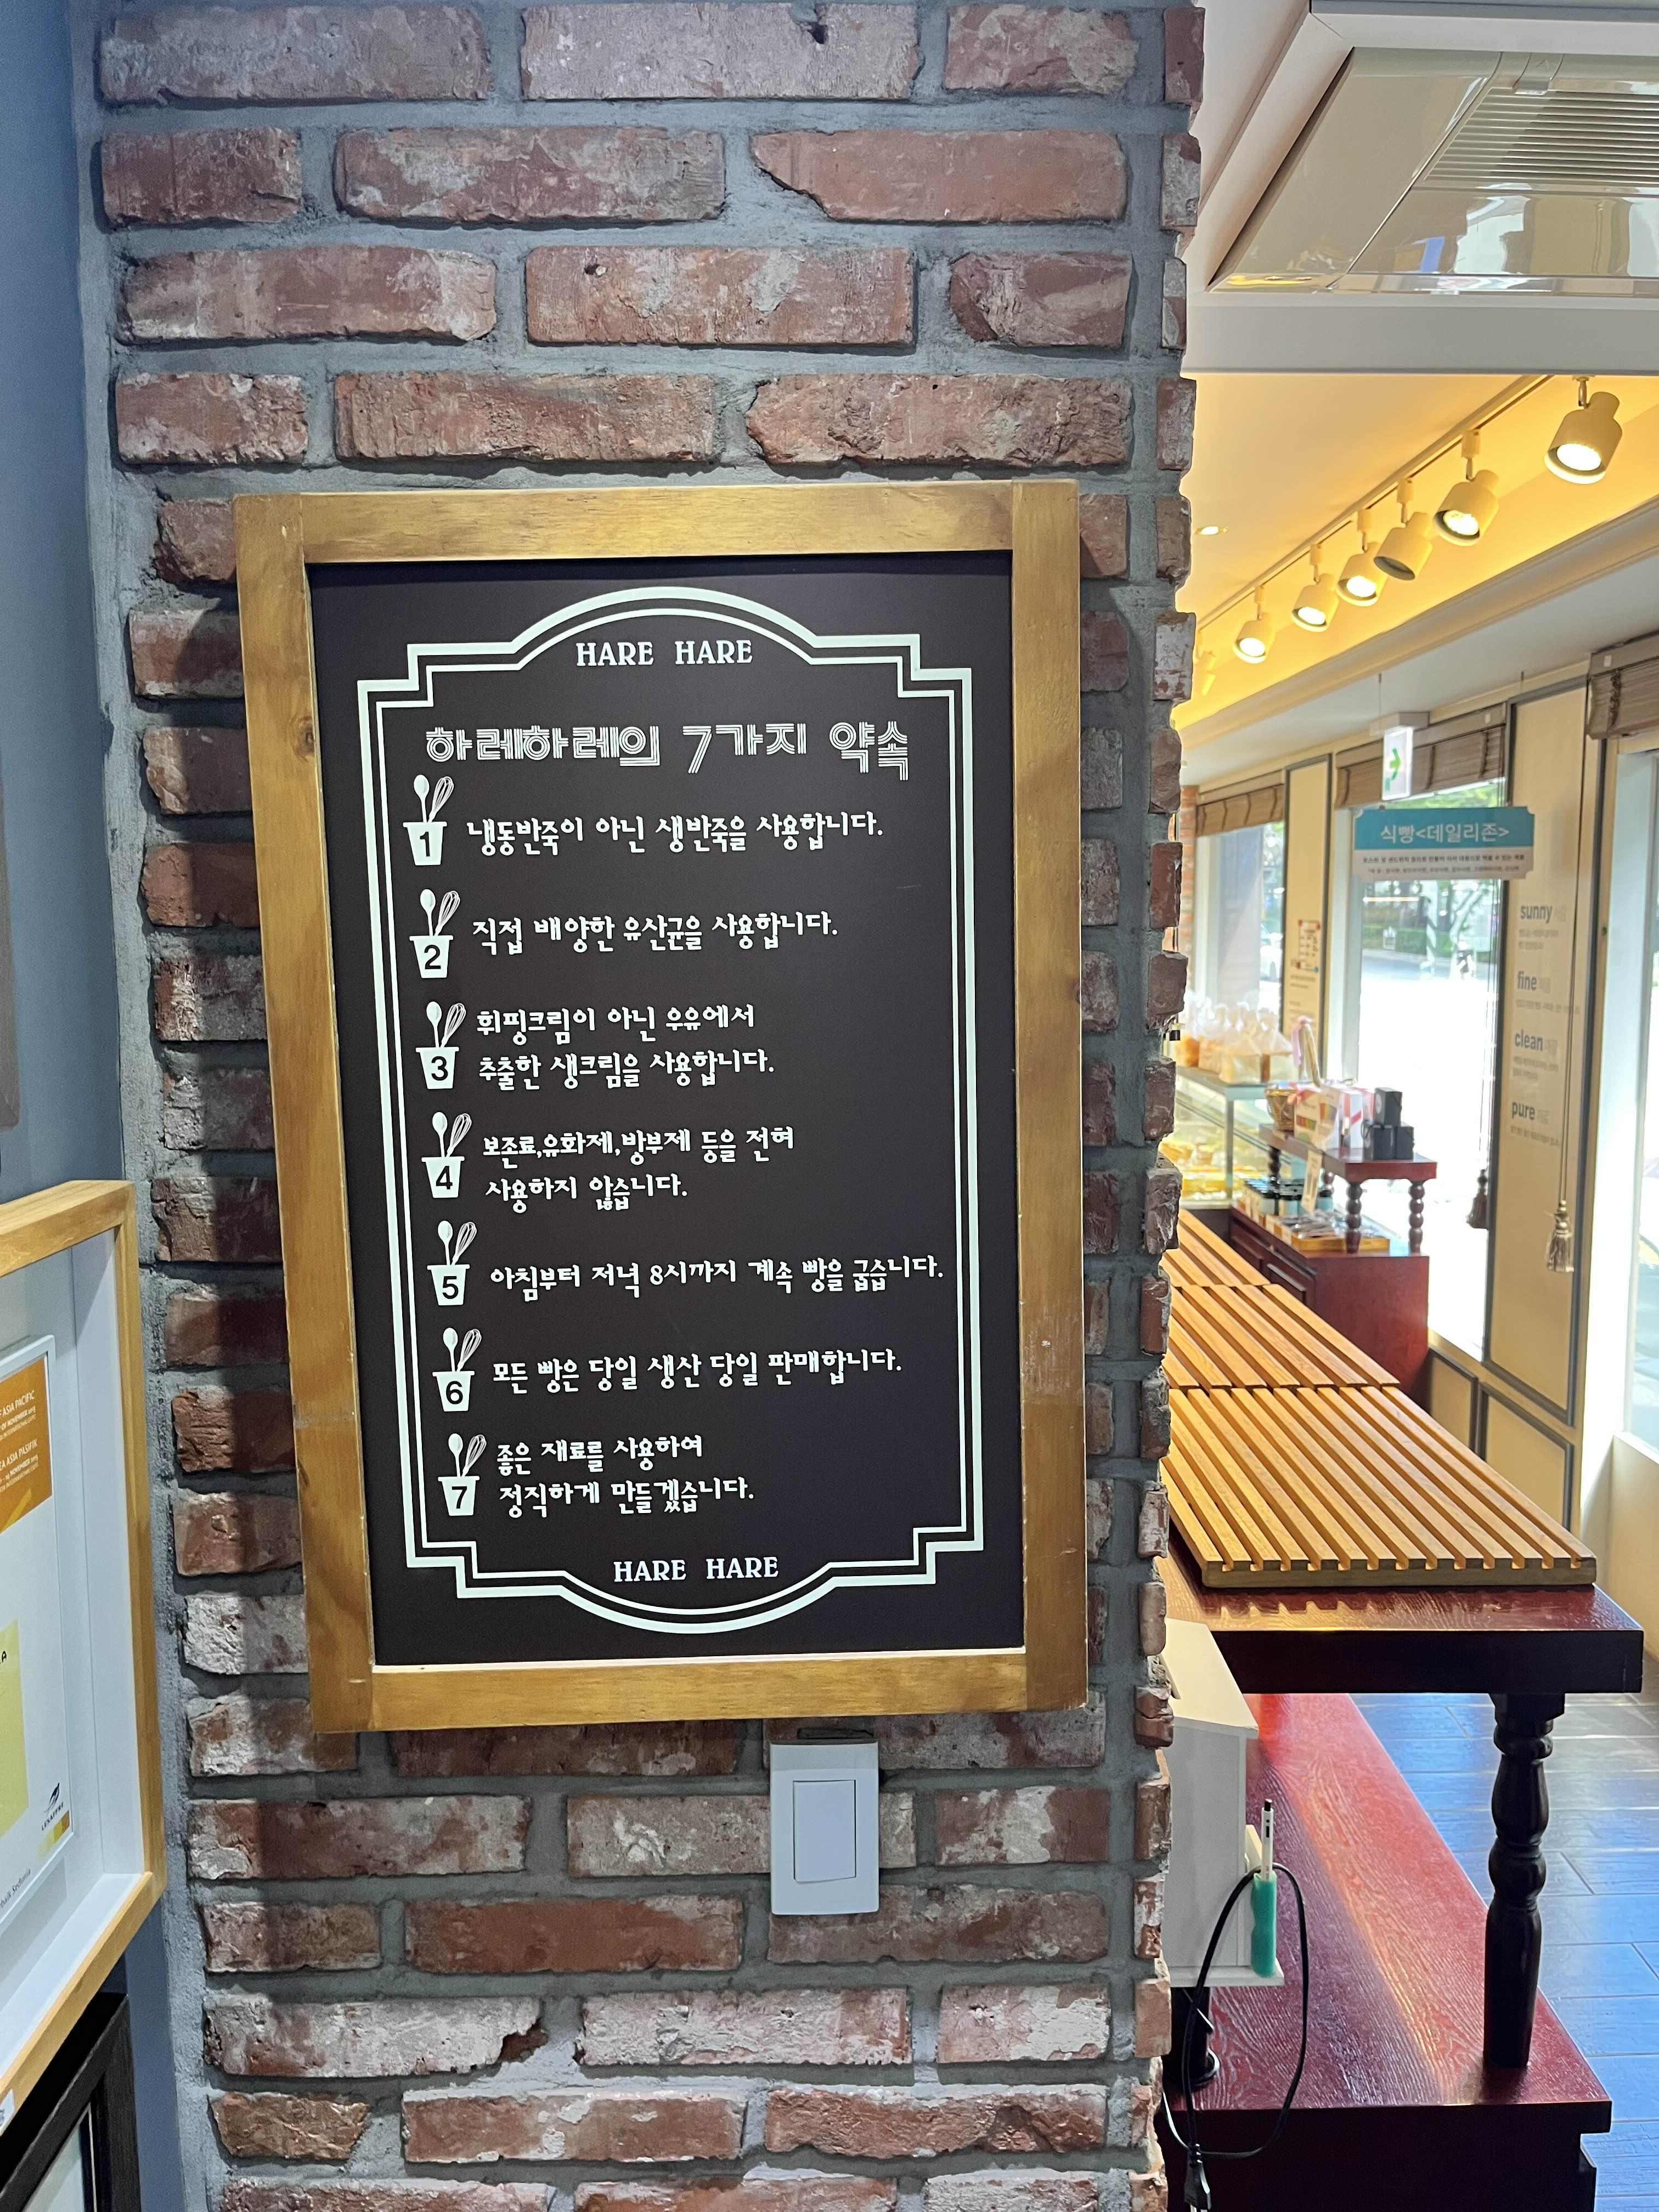 HARE HARE
하레하레의 7가지 약속
1 냉동반죽이 아닌 생반죽을 사용합니다.
2 직접 배양한 유산균을 사용합니다.
3 휘핑크림이 아닌 우유에서
추출한 생크림을 사용합니다.
4 보존료,유화제,방부제 등을 전혀
사용하지 않습니다.
5 아침부터 저녁 8시까지 계속 빵을 굽습니다.
6 모든 빵은 당일 생산 당일 판매합니다.
7 좋은 재료를 사용하여
정직하게 만들겠습니다.
HARE HARE
식빵<데일리존>
sunny
fine
clean
pure
ASIA PACIFIC
ASIA PASIFIK
LESAFFRE